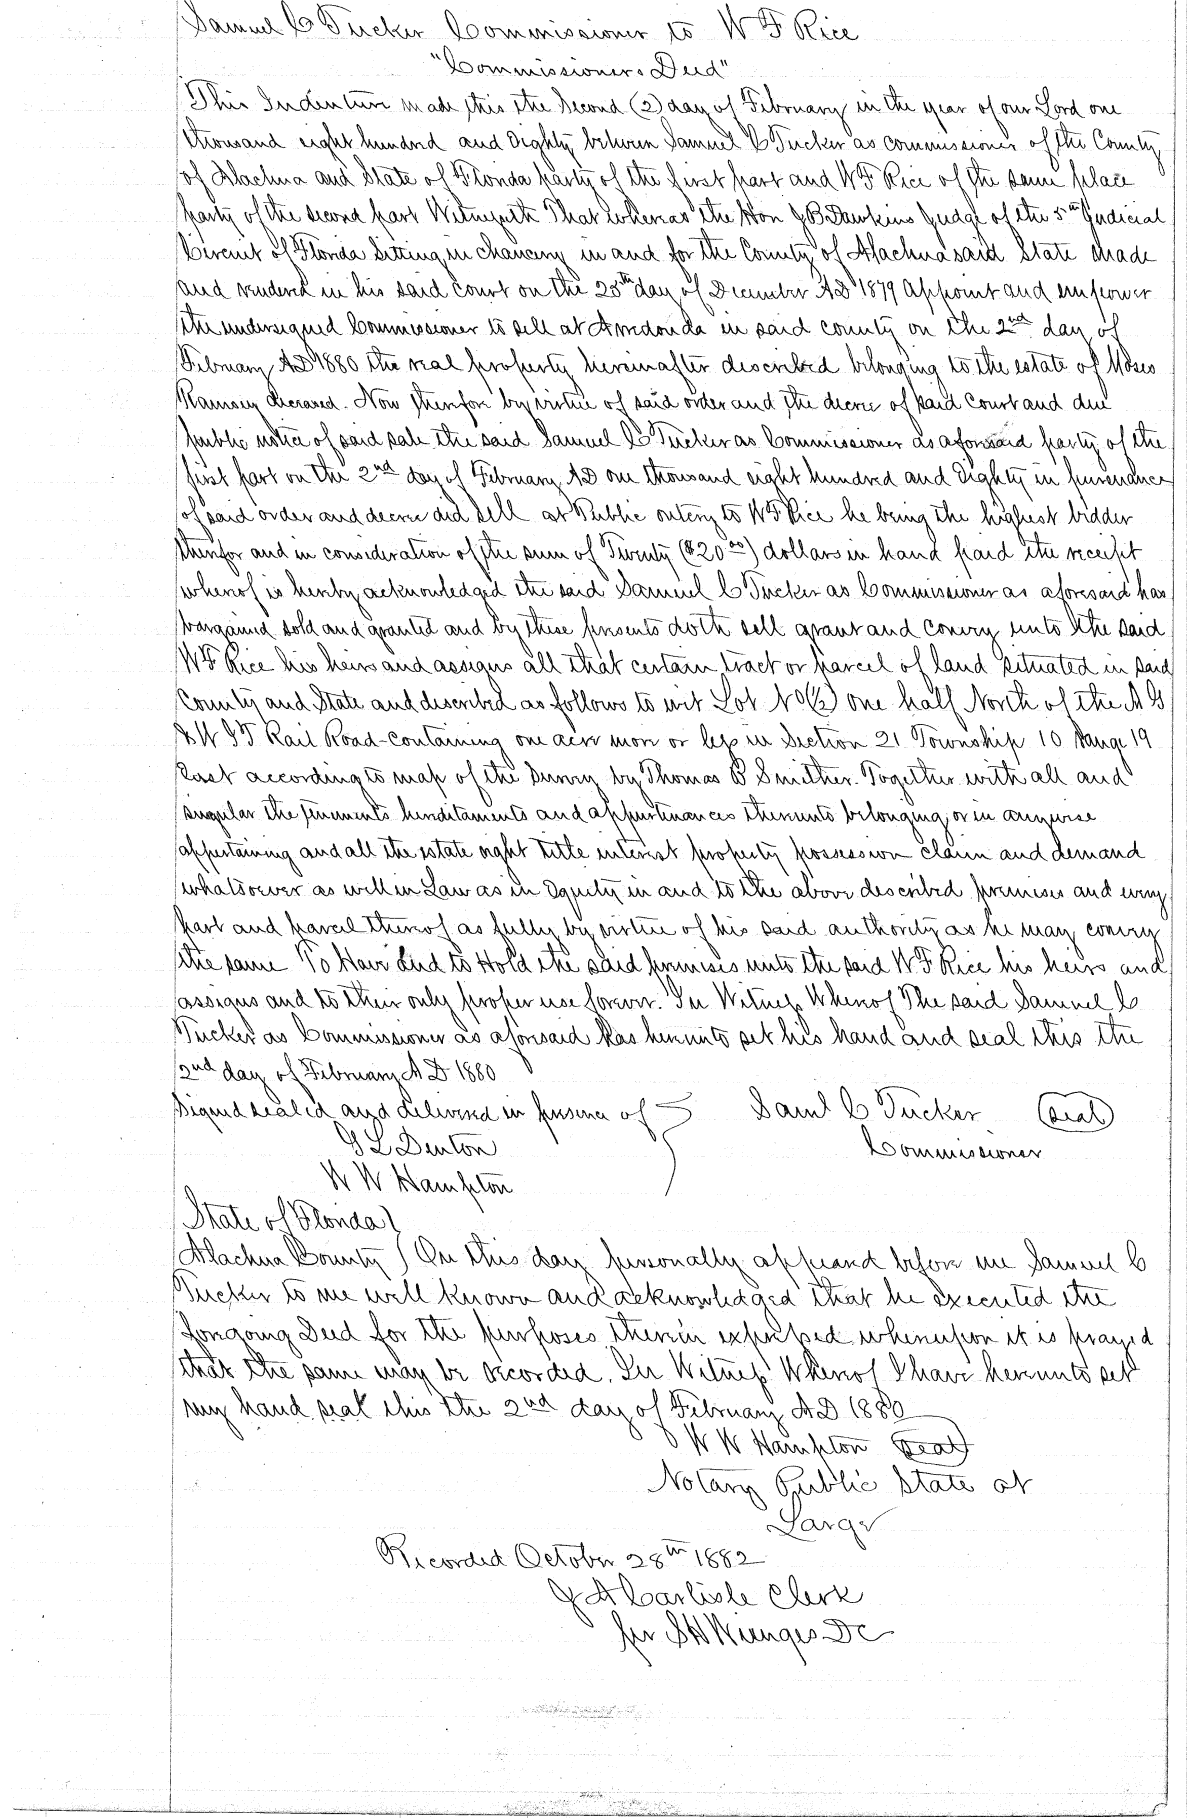 Samuel C Tucker Commissioner to W F Rice
"Commissioners Deed"
This Indenture made this the Second (2) day of February in the year of our Lord one
thousand eight hundred and Eighty between Samuel C Tucker as commissioner of the County
of Alachua and State of Florida party of the first part and W F Rice of the same place
party of the second part Witnesseth That whereas the Hon J B Dawkins Judge of the 5th Judicial
Circuit of Florida Sitting in chancery in and for the County of Alachua said State Made
and rendered in his said court on the 25th day of December AD 1879 Appoint and empower
the undersigned Commissioner to sell at Arredonda in said county on the 2nd day of
February AD 1880 the real property hereinafter described belonging to the estate of Moses
Ramsey deceased. Now therefore by virtue of said order and the decree of said court and due
public notice of said sale the said Samuel C Tucker as Commissioner as aforesaid party of the
first part on the 2nd day of February AD one thousand eight hundred and Eighty in pursuance
of said order and decree did sell at Public outcry to W F Rice he being the highest bidder
therefor and in consideration of the sum of Twenty ($20.00) dollars in hand paid the receipt
whereof is hereby acknowledged the said Samuel C Tucker as Commissioner as aforesaid has
bargained sold and granted and by these presents doth sell grant and convey unto the said
W F Rice his heirs and assigns all that certain tract or parcel of land situated in said
County and State and described as follows to wit Lot No (½) one half North of the A G
& W I T Rail Road containing one acre more or less in Section 21 Township 10 Range 19
East according to map of the Survey by Thomas B Smither. Together with all and
singular the tenements hereditaments and appurtenances thereunto belonging or in anywise
appertaining and all the estate right title interest property possession claim and demand
whatsoever as well in Law as in Equity in and to the above described premises and every
part and parcel thereof as fully by virtue of his said authority as he may convey
the same To Have and to Hold the said premises unto the said W F Rice his heirs and
assigns and to their only proper use forever. In Witness Whereof The said Samuel C
Tucker as Commissioner as aforesaid has hereunto set his hand and seal this the
2nd day of February A D 1880
Signed sealed and delivered in presence of Saml C Tucker (seal)
G L Denton Commissioner
W W Hampton
State of Florida
Alachua County On this day personally appeared before me Samuel C
Tucker to me well known and acknowledged that he executed the
foregoing Deed for the purposes therein expressed whereupon it is prayed
that the same may be recorded. In Witness Whereof I have hereunto set
my hand seal this the 2nd day of February AD 1880
W W Hampton (seal)
Notary Public State at
Large
Recorded October 28th 1882
J A Carlisle Clerk
per S H Wienges DC